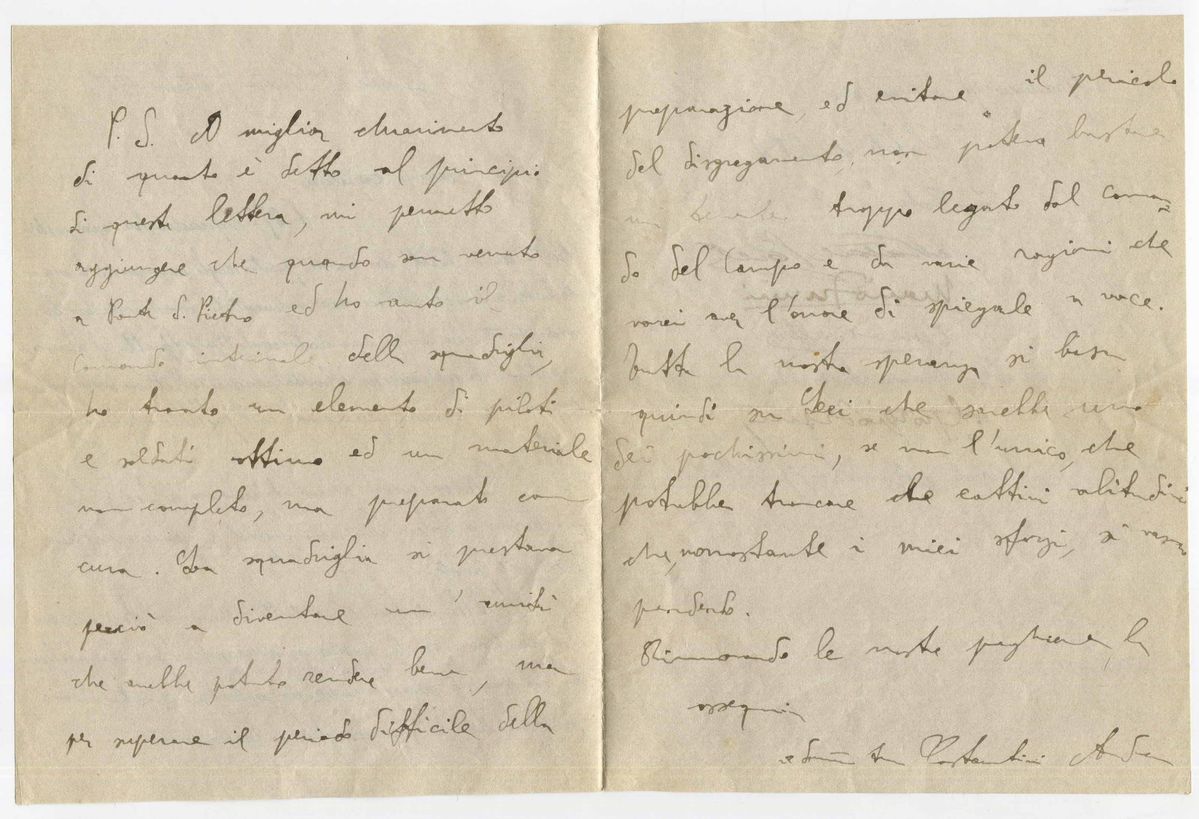 P. S. A miglior chiarimento
di quanto è detto al principio
di questa lettera, mi permetto
aggiungere che quando son venuto
a Ponte S. Pietro ed ho avuto il
comando interinale della squadriglia,
ho trovato un elemento di piloti
e soldati ottimo ed un materiale
non completo, ma preparato con
cura. La squadriglia si prestava
perciò a diventare un'unità
che avrebbe potuto rendere bene, ma
per superare il periodo difficile della
preparazione, ed evitare il pericolo
del disgregamento, non poteva bastare
un tenente, troppo legato dal coman=
do del Campo e da varie ragioni che
vorrei aver l'onore di spiegarle a voce.
Tutta la nostra speranza si basa
quindi su Lei che sarebbe uno
dei pochissimi, se non l'unico, che
potrebbe troncare che cattivi abitudini
che, nonostante i miei sforzi, si vanno
prendendo.
Rinnovando le nostre preghiere, la
ossequia
Costantini Andrea